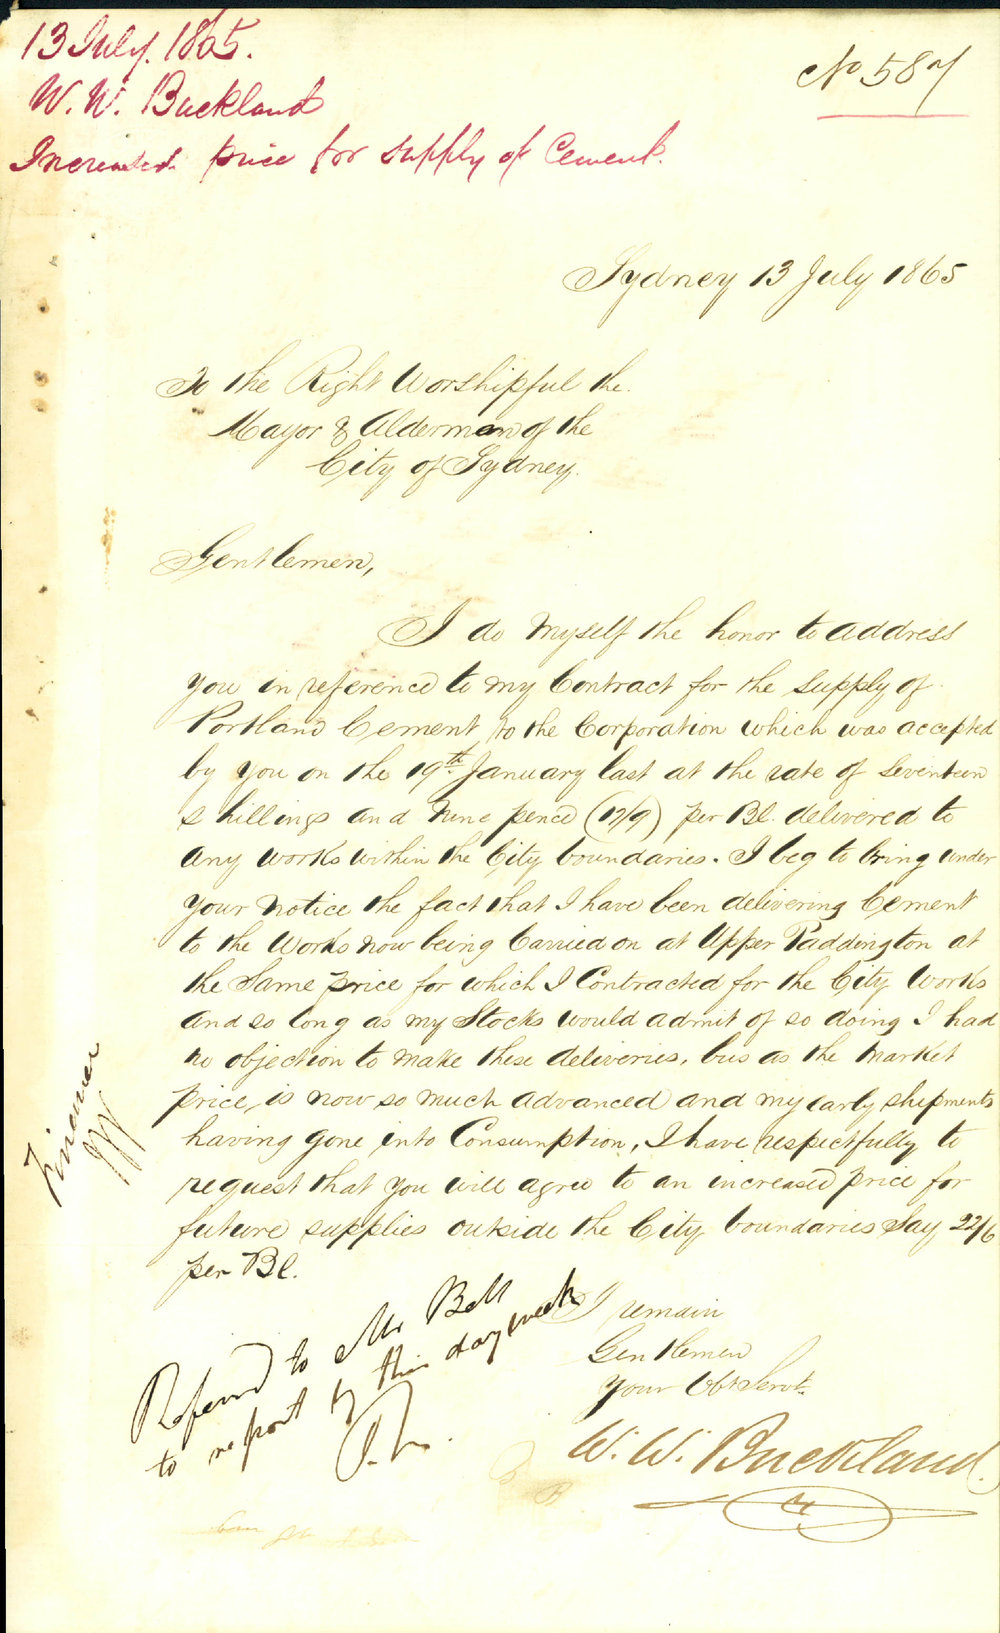 13 July. 1865.
W. W. Buckland
Increased price for supply of Cement.
No 587
Sydney 13 July 1865
To the Right Worshipful the
Mayor & Aldermen of the
City of Sydney.
Gentlemen,
I do myself the honor to address
you in reference to my Contract for the supply of
Portland Cement to the Corporation which was accepted
by you on the 19th January last at the rate of Seventeen
shillings and nine pence (17/9) per Bl. delivered to
any works within the City boundaries. I beg to bring under
your notice the fact that I have been delivering Cement
to the Works now being Carried on at Upper Paddington at
the Same price for which I Contracted for the City Works
and so long as my Stocks would admit of so doing I had
no objection to make these deliveries, but as the market
price, is now so much advanced and my early shipments
having gone into Consumption, I have respectfully to
request that you will agree to an increased price for
future supplies outside the City boundaries Say 22/6
per Bl.
I remain
Gentlemen
Your Obt Servt.
W. W. Buckland.
Referred to Mr Bell
to report by this day week
Finance